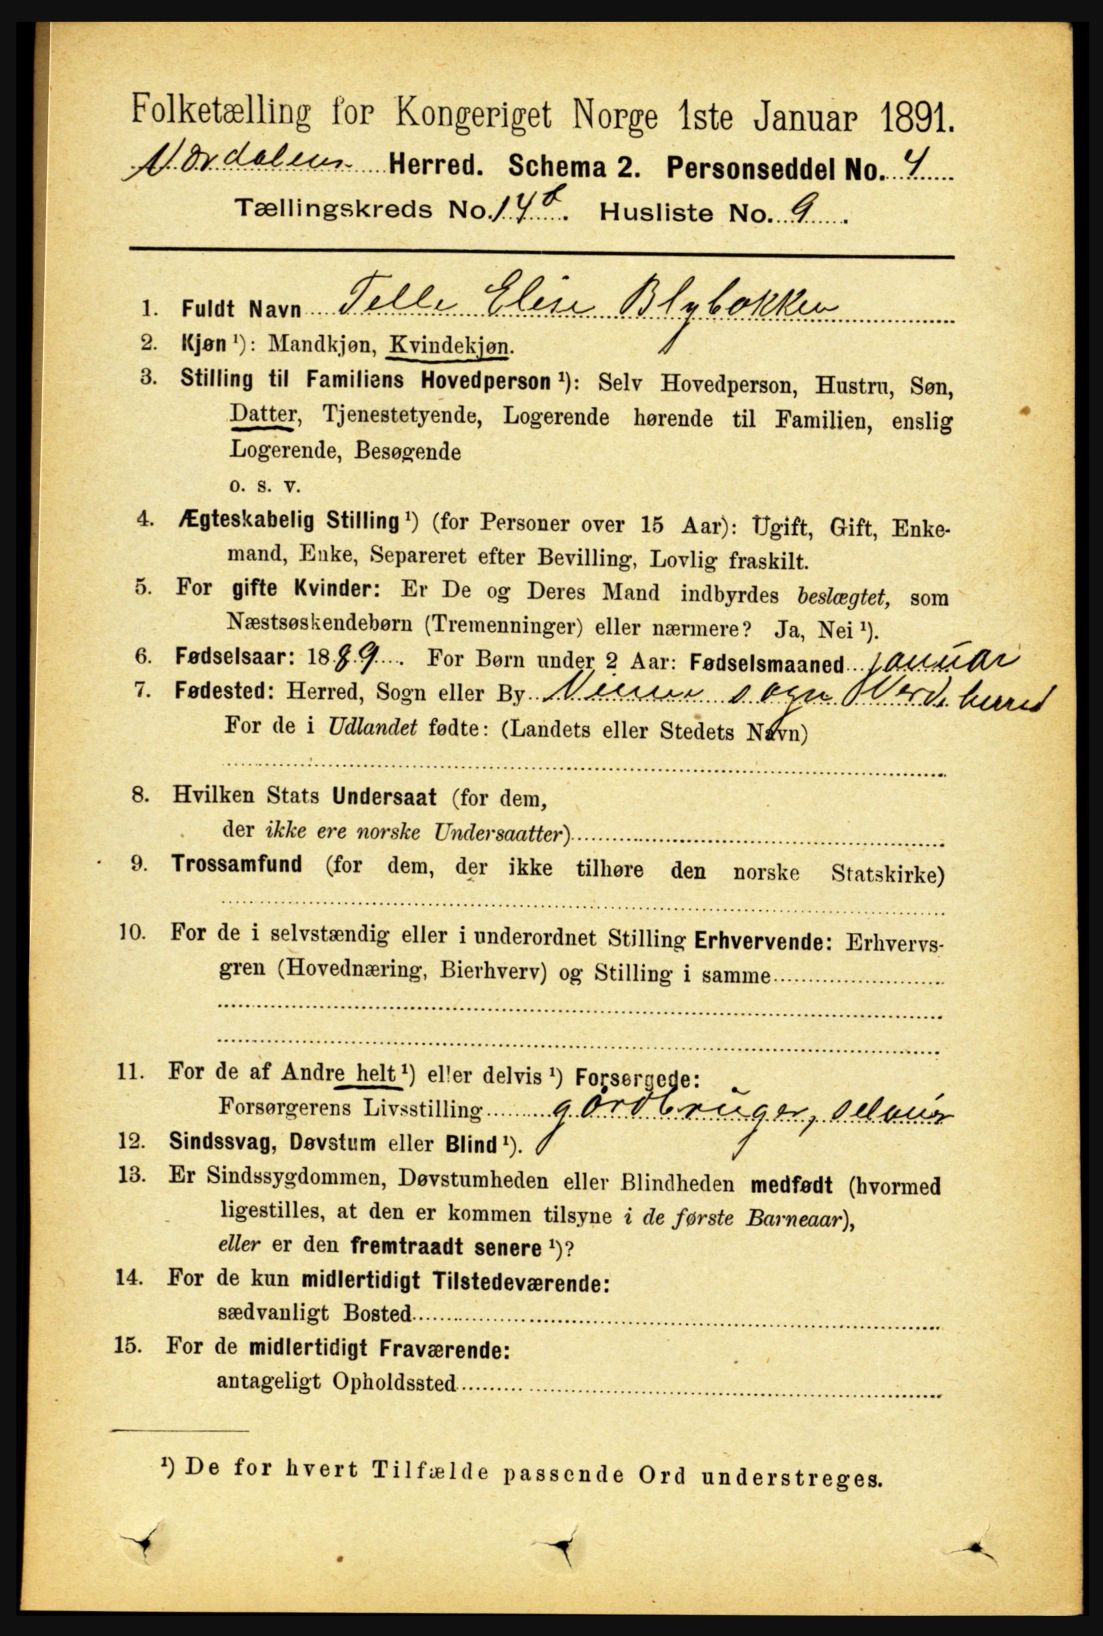 Folketælling for Kongeriget Norge 1ste Januar 1891.
Værdalens Herred. Schema 2. Personseddel No. 4
Tællingskreds No. 14b. Husliste No. 9.
1. Fuldt Navn Telle Elise Blybakken
2. Kjøn ¹): Mandkjøn, Kvindekjøn.
3. Stilling til Familiens Hovedperson ¹): Selv Hovedperson, Hustru, Søn,
Datter, Tjenestetyende, Logerende hørende til Familien, enslig
Logerende, Besøgende
o. s. v.
4. Ægteskabelig Stilling ¹) (for Personer over 15 Aar): Ugift, Gift, Enke-
mand, Enke, Separeret efter Bevilling, Lovlig fraskilt.
5. For gifte Kvinder: Er De og Deres Mand indbyrdes beslægtet, som
Næstsøskendebørn (Tremenninger) eller nærmere? Ja, Nei ¹).
6. Fødselsaar: 1889. For Børn under 2 Aar: Fødselsmaaned januar
7. Fødested: Herred, Sogn eller By Vinne sogn Verd. herred
For de i Udlandet fødte: (Landets eller Stedets Navn)
8. Hvilken Stats Undersaat (for dem,
der ikke ere norske Undersaatter)
9. Trossamfund (for dem, der ikke tilhøre den norske Statskirke)
10. For de i selvstændig eller i underordnet Stilling Erhvervende: Erhvervs-
gren (Hovednæring, Bierhverv) og Stilling i samme
11. For de af Andre helt ¹) eller delvis ¹) Forsørgede:
Forsørgerens Livsstilling gårdbruger, selveier
12. Sindssvag, Døvstum eller Blind ¹).
13. Er Sindssygdommen, Døvstumheden eller Blindheden medfødt (hvormed
ligestilles, at den er kommen tilsyne i de første Barneaar),
eller er den fremtraadt senere ¹)?
14. For de kun midlertidigt Tilstedeværende:
sædvanligt Bosted
15. For de midlertidigt Fraværende:
antageligt Opholdssted
¹) De for hvert Tilfælde passende Ord understreges.